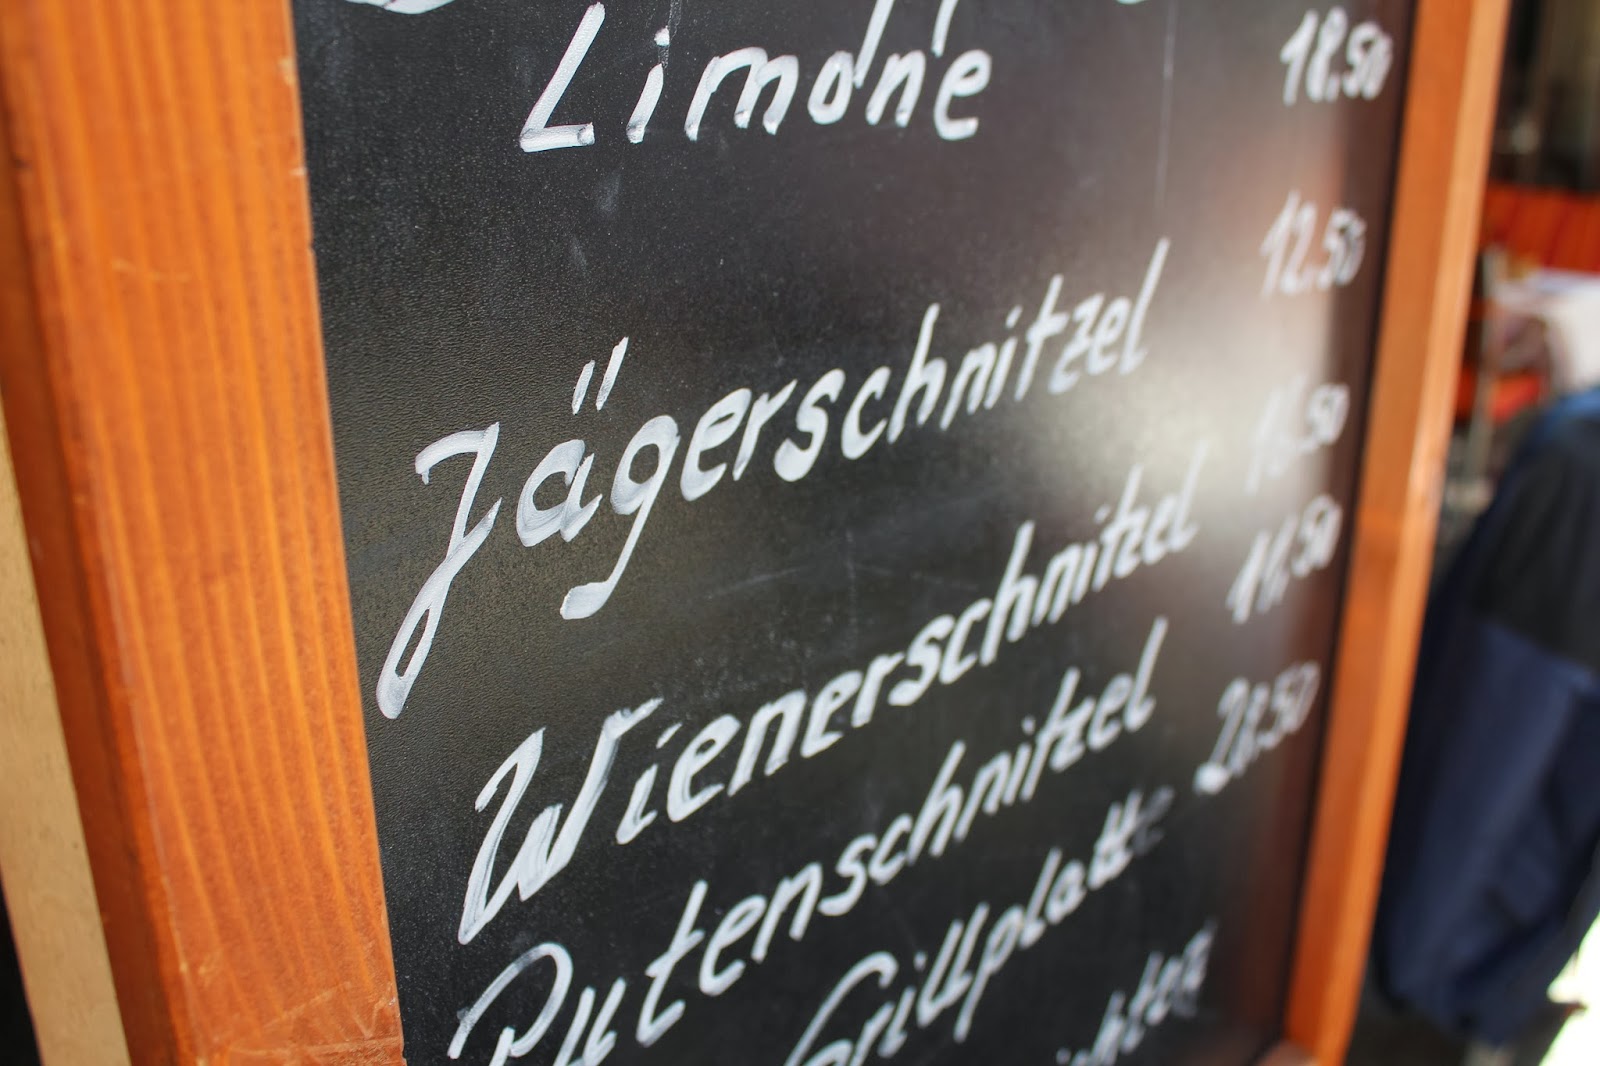 Limone 18.50
Jägerschnitzel 12.50
Wienerschnitzel
Putenschnitzel 11,50
Grillplatte 28.50